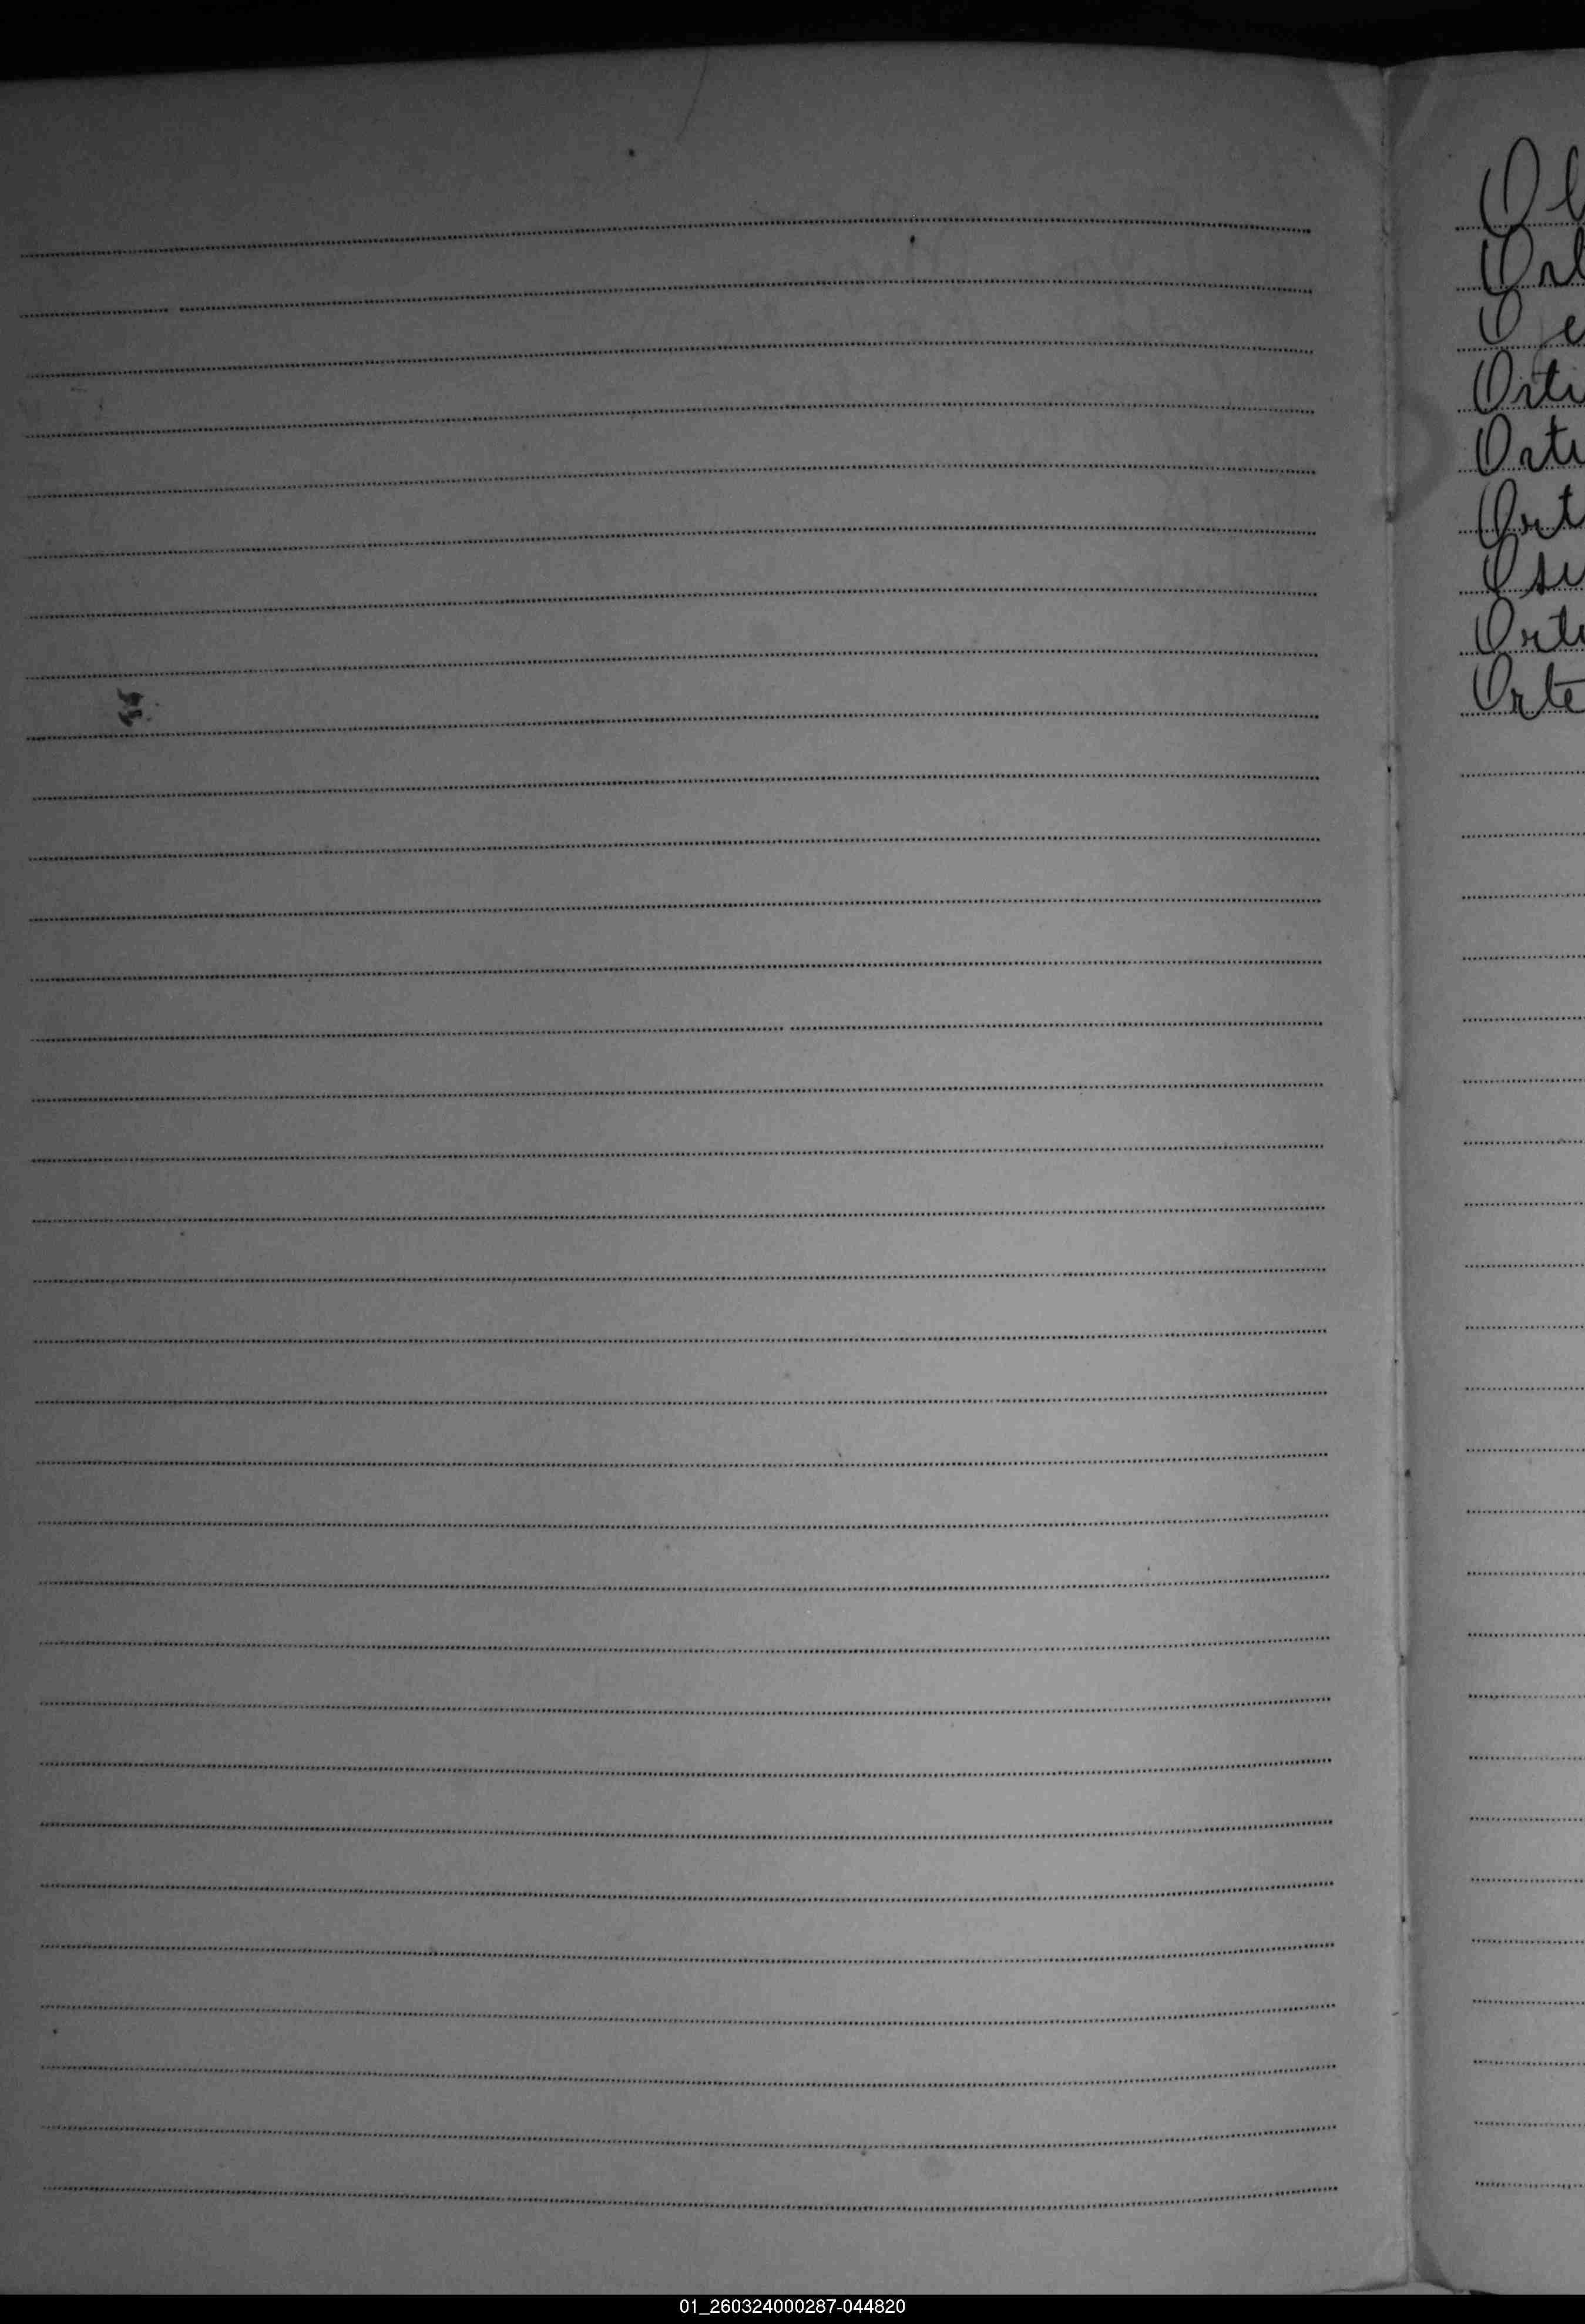 Ol
Orl
Oje
Orti
Orti
Ort
Osu
Orti
Orte
01_260324000287-044820